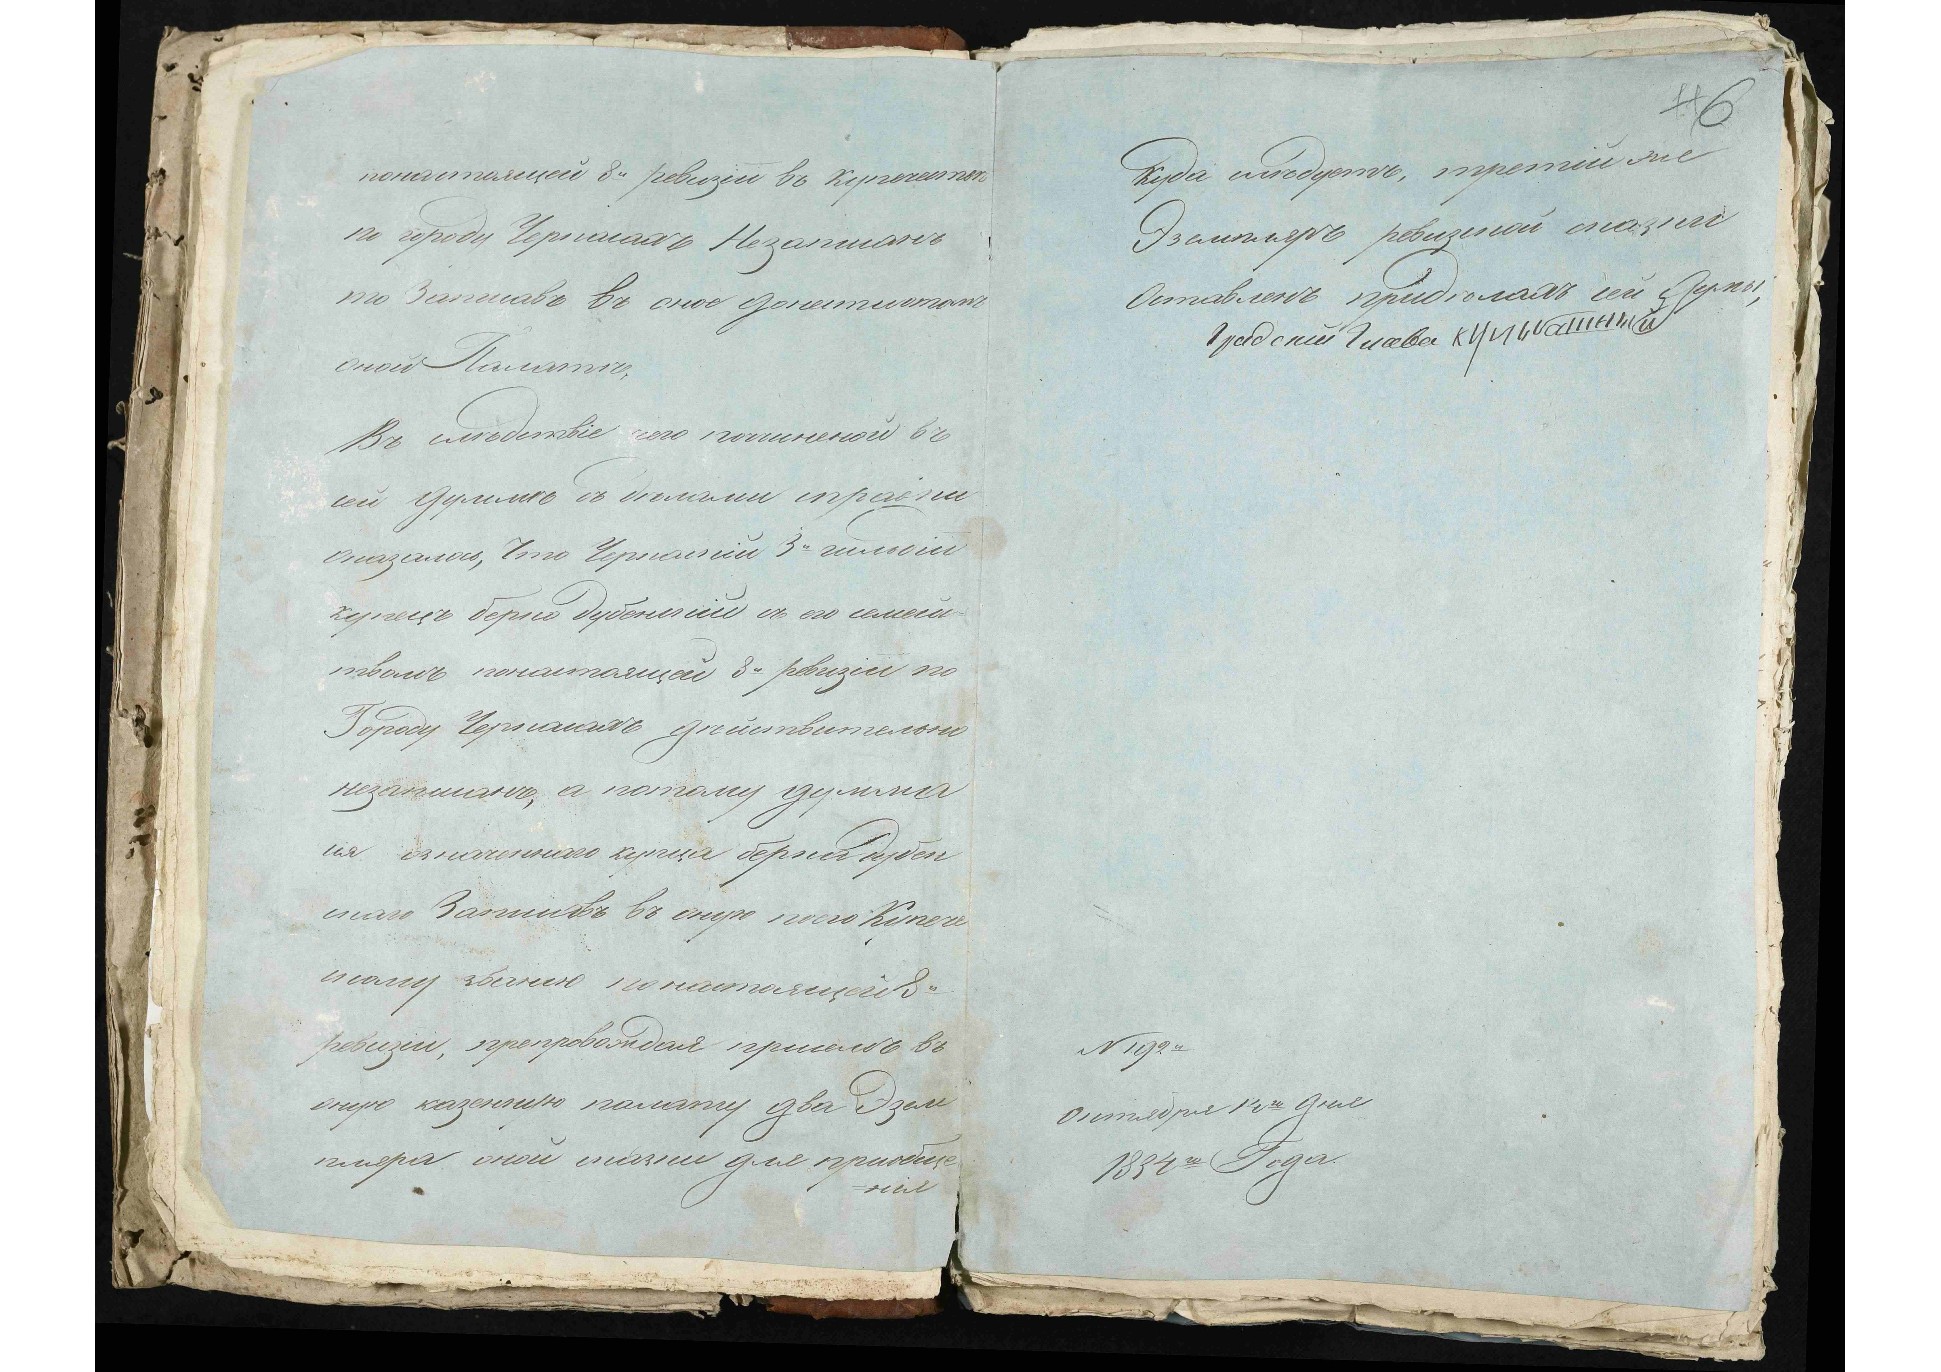 понастоящей 8й ревизіи въ купечество
по городу Черкасахъ Незаписанъ
то Записавъ въ оное донести этой
оной Палатѣ,
Въ слѣдствіе чего почииненой въ
сей думмѣ съ дѣлами справки
оказалось, Что Черкаскій 3й гильдіи
купецъ берко Дубенскій съ его семей-
твомъ понастоящей 8й ревизіи по
Городу Черкасахъ дѣйствительно
незаписанъ, а потому думма
сія означеннаго купца берка Дубен
скаго Записавъ въ оную по его Купече
скому званію понастоящей 8й
ревизіи, препровождая присемъ въ
оную казенную палату два Экзем
пляра оной сказки для приобще
=нія
46
Куда слѣдуетъ, третій же
Экземпляръ ревизской сказки
Оставленъ придѣлахъ сей Думы,
Градскій Глава
N 192й
Октября 12го дня
1834го Года.